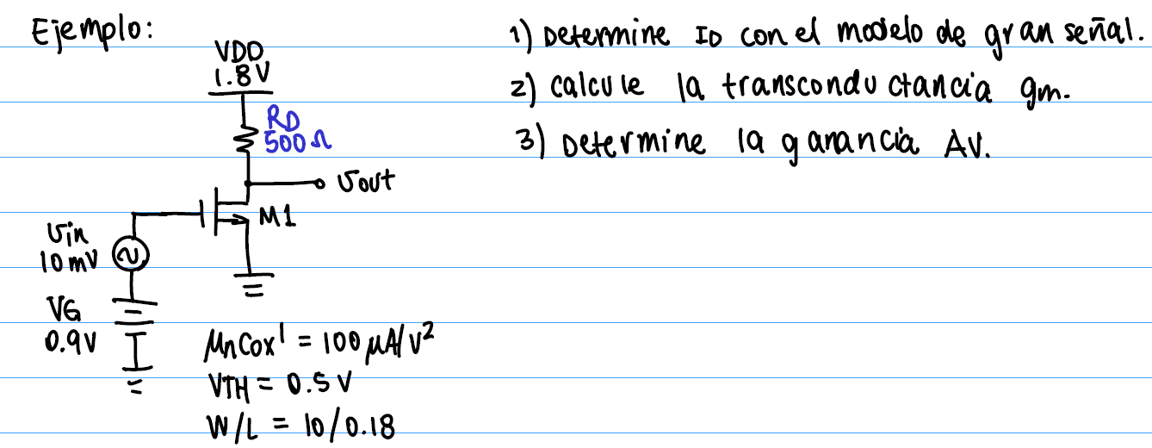 Ejemplo:
VDD
1.8V
RD
500Ω
Vout
M1
Vin
10mV
VG
0.9V
μnCox' = 100 μA/V²
VTH = 0.5 V
W/L = 10/0.18
1) Determine ID con el modelo de gran señal.
2) calcule la transconductancia gm.
3) Determine la ganancia AV.